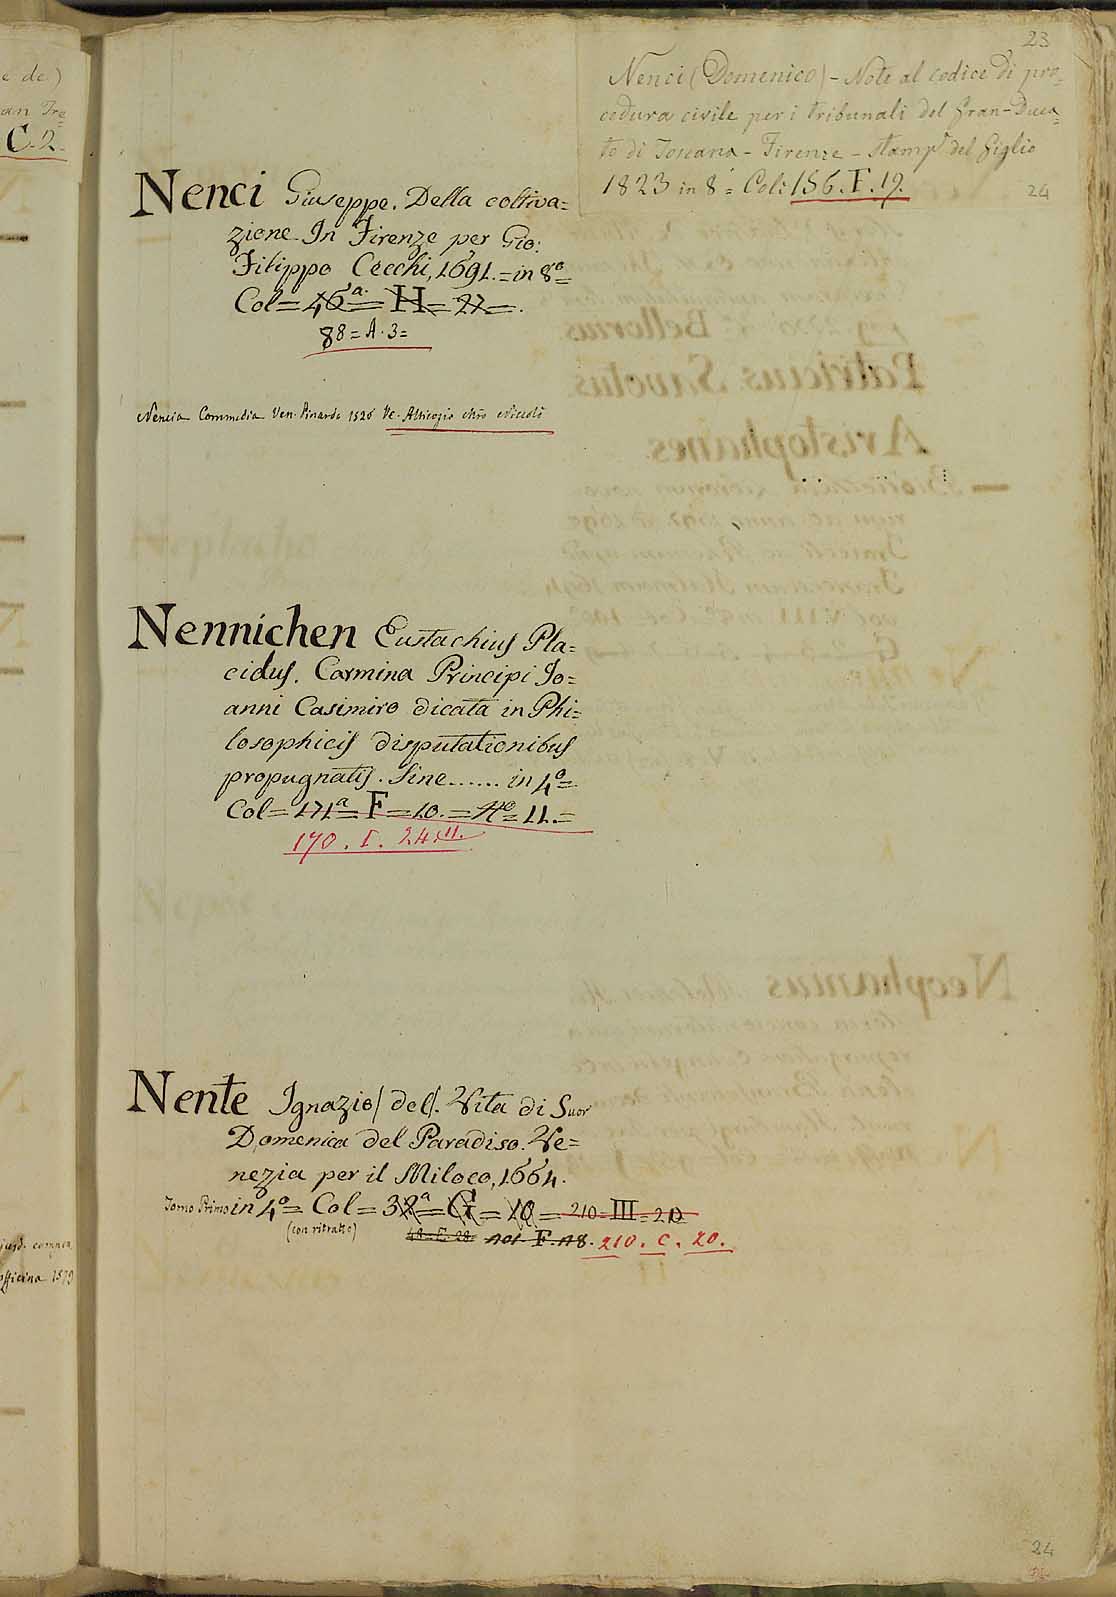 23
Nenci (Domenico) - Note al codice di pro=
cedura civile per i tribunali del Gran-Duca=
to di Toscana - Firenze - Stamp.ª del Giglio
1823 in 8° = Col: 156. F. 19.
24
Nenci Giuseppe. Della coltiva=
zione. In Firenze per Gio:
Filippo Cecchi, 1691. = in 8° =
Col = 46ª = H = 27 = .
88 = A. 3 =
Nencia Commedia Ven. 1526
Nennichen Eustachius Pla=
cidus. Carmina Principi Jo=
anni Casimiro dicata in Phi=
losophicis disputationibus
propugnatis. Sine ...... in 4° =
Col = 171ª = F = 10. = N° = 11. =
170. I. 24. 11.
Nente Ignazio / del /. Vita di Suor
Domenica del Paradiso. Ve=
nezia per il Miloco, 1664.
Tomo Primo in 4° = Col = 38ª = G = 10 = 210 = III = 20
(con ritratto)
48 = C. 28. F. 18. 210. C. 20.
24
e de)
C. 2.
officina 1579